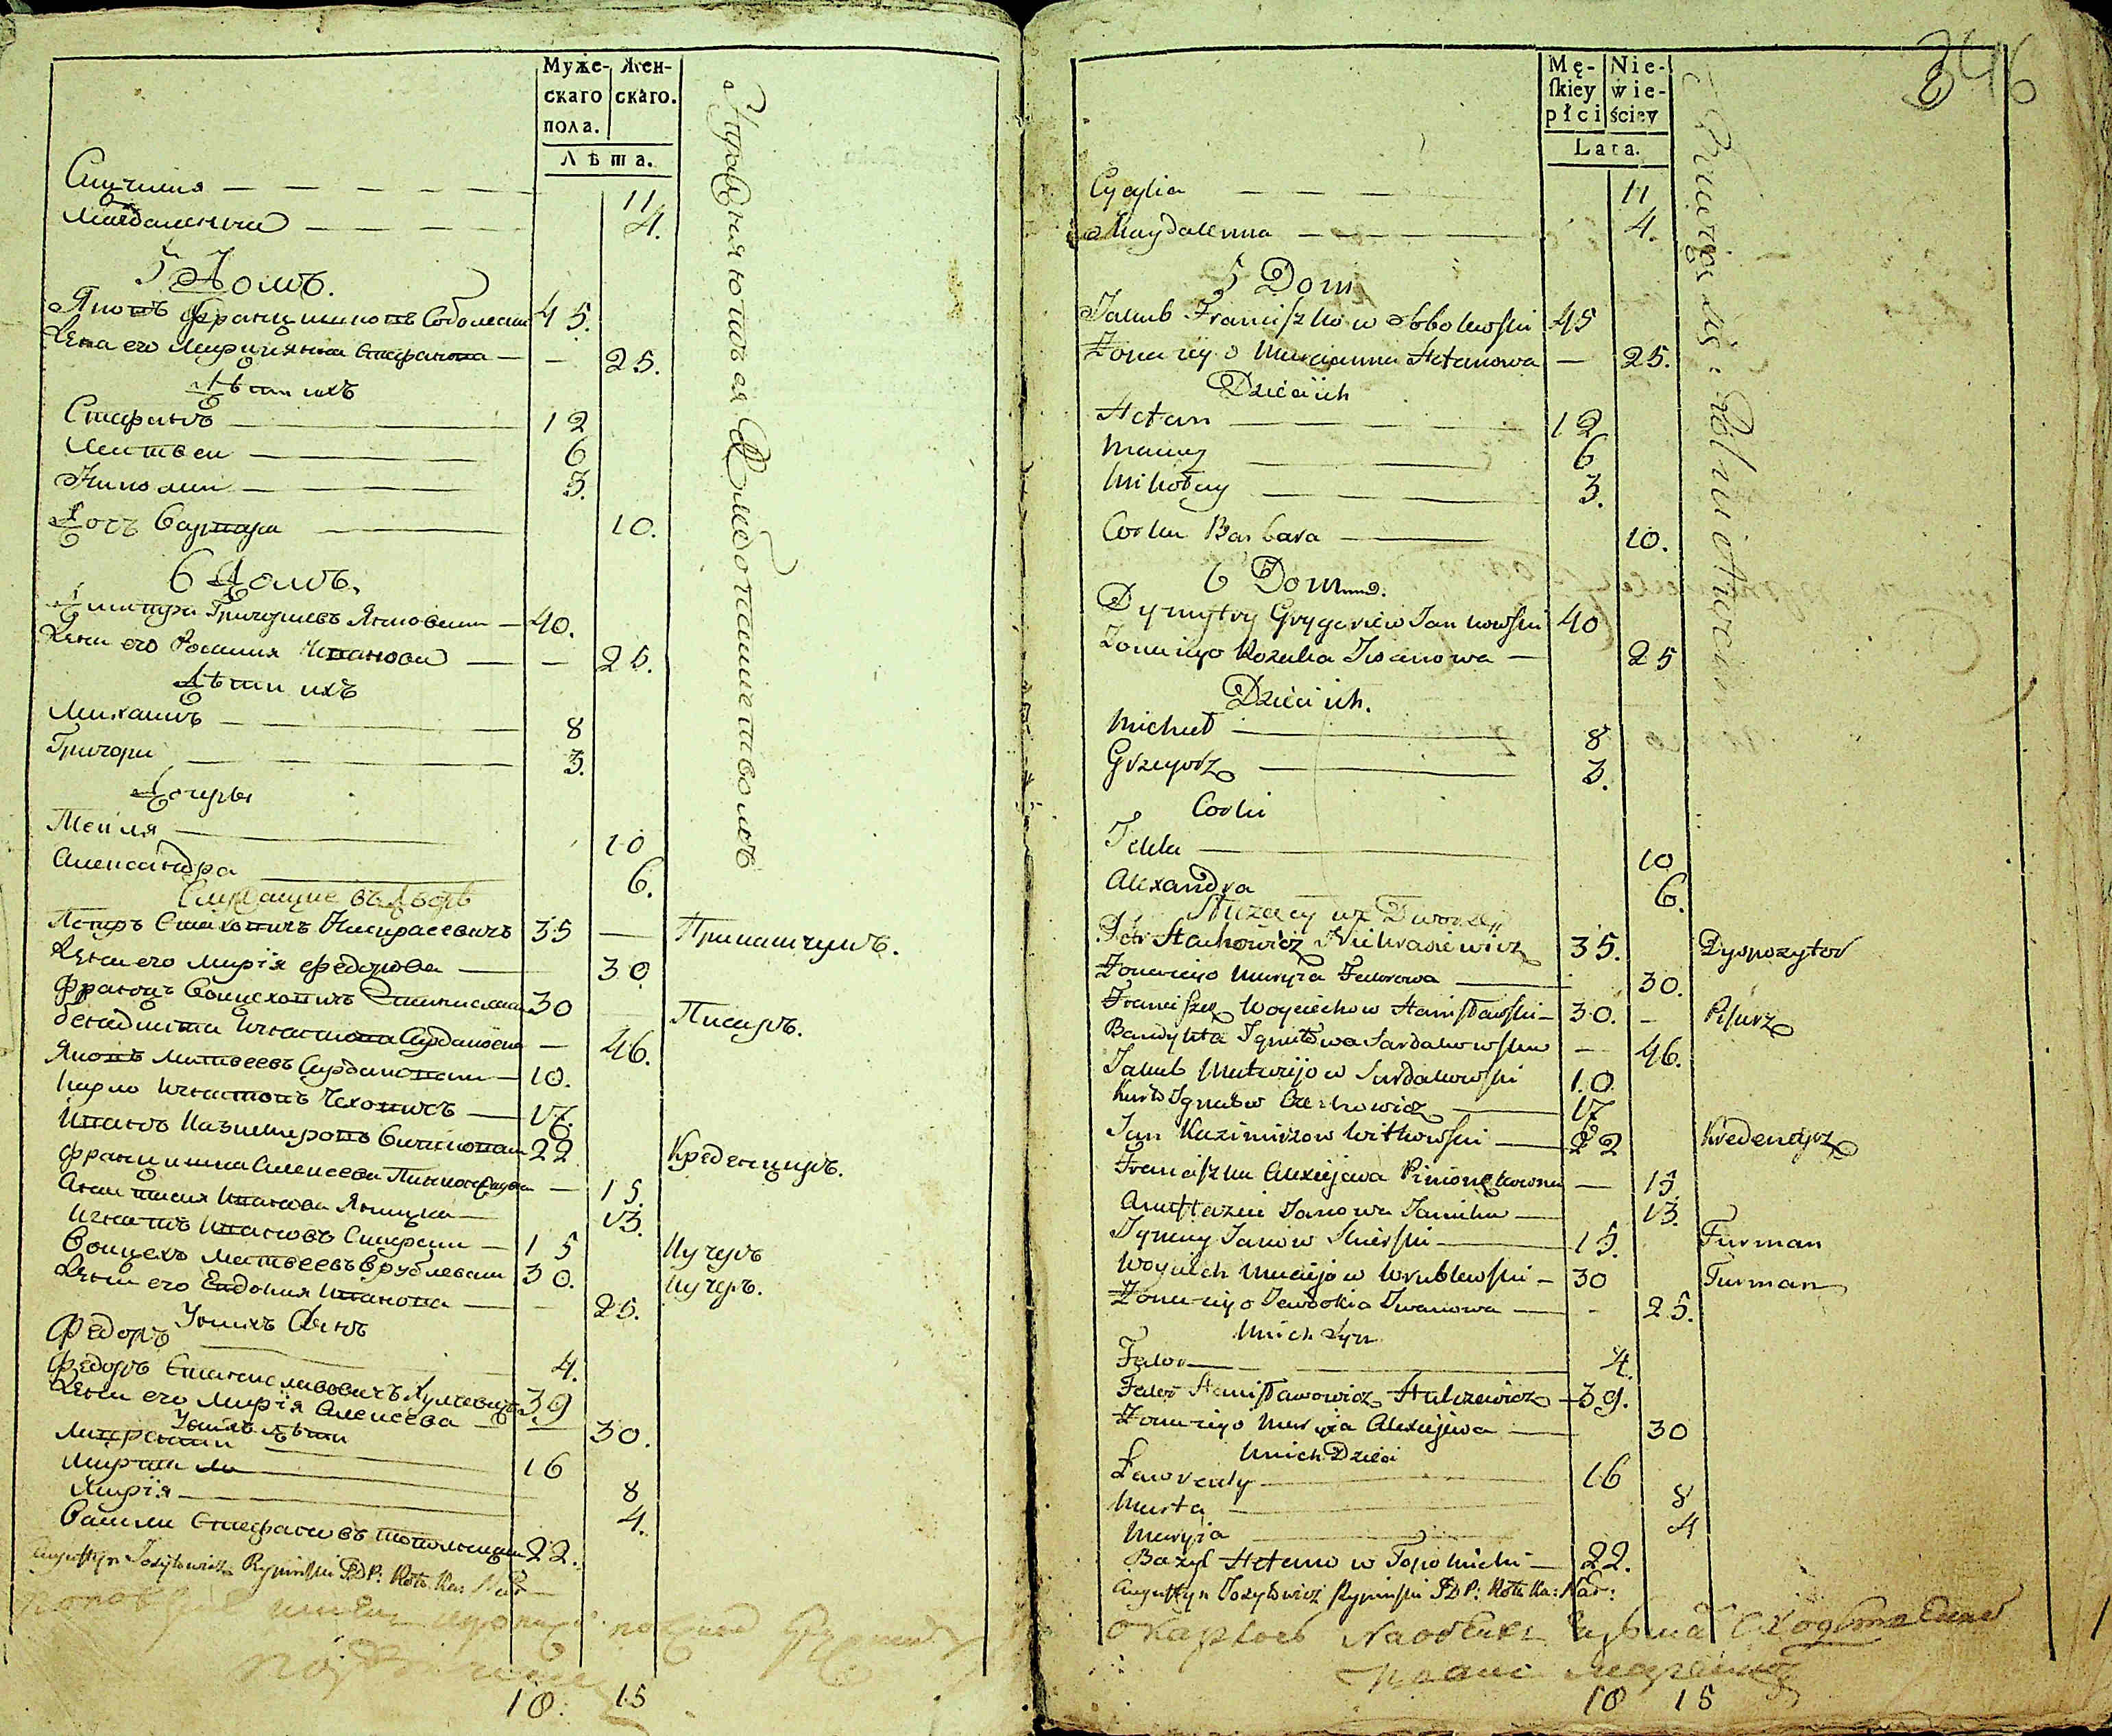 Муже- Жен-
скаго скаго.
пола.
Лѣта.
Цицилия 11
Магдаленна 4.
5 Домъ.
Яковъ Францишковъ Соболевски 45.
Жена его Марцианна Стефанова — 25.
Дѣти ихъ
Стефанъ 12
Матвеи 6
Николаи 3.
Дочь Варвара 10.
6 Домъ.
Дмитри Григориевъ Янковски 40.
Жена его Розалия Иванова — 25.
Дѣти ихъ
Михаилъ 8
Григори 3.
Дочери
Текля 10
Александра 6.
Служащие въ Дворѣ
Петръ Стаховичъ Некрасевичъ 35 — Прикащикъ.
Жена его Марія Федорова 30
Францъ Воицеховъ Станиславски 30 Писарь.
Бенадикта Игнатова Сардаковска — 46.
Яковъ Матвеевъ Сардаковски 10.
Карло Игнатовъ Чеховичъ 17.
Иванъ Казимировъ Витковски 22 Креденцеръ.
Францишка Алексеева Пинионжковна — 15.
Анастасия Иванова Яницка 13.
Игнатъ Ивановъ Снерски 15 Кучеръ
Воицехъ Матвеевъ Врублевски 30. Кучеръ.
Жена его Евдокия Иванова — 25.
У нихъ Сынъ
Федоръ 4.
Федоръ Станиславовичъ Гулчевичъ 39
Жена его Марія Алексеева — 30.
У нихъ дѣти
Лаврентии 16
Марта 8
Марія 4.
Васили Стефановъ Топольницки 22.
Augustyn Jozefowicz Rypinski P: Rot: Ka: Nar:
10. 15
Уравняютъся с Хлебопашетволъ
346
Mę- Nie-
ſkiey wie-
płci ściey
Lata.
Cycylia 11
Magdalenna 4.
5 Dom
Jakub Franciszkow Sobolewski 45
Żona iego Marcianna Stefanowa — 25.
Dzieci ich
Stefan 12
Maciey 6
Mikołay 3.
Corka Barbara 10.
6 Dom.
Dymytry Grygoriew Jankowski 40
Żona iego Rozalia Iwanowa — 25
Dzieci ich.
Michał 8
Grzegorz 3.
Corki
Tekla 10
Alexandra 6.
Służący we Dworze
Piotr Stachowicz Niekrasiewicz 35. Dyspozytor
Żona iego Maryia Fedorowa 30.
Franciszek Woyciechow Stanisławski 30. — Pisarz
Benedykta Ignatowa Sardakowska — 46.
Jakub Matwiejow Sardakowski 10
Karol Ignatow Czechowicz 17
Jan Kazimirzow Witkowski 22 Kredencyrz
Franciszka Alexiejewa Pinionżkowna — 15
Anastazia Janowa Janicka 13.
Ignacy Janow Snierski 15. Furman
Woyciech Maciejow Wrublewski 30 Furman
Żona iego Jewdokia Iwanowa — 25.
U nich Syn
Fedor 4.
Fedor Stanisławowicz Hulczewicz 39.
Żona iego Maryia Alexiejewa 30
U nich Dzieci
Lawrenty 16
Marta 8
Maryia 4
Bazyl Stefanow Topolnicki 22.
Augustyn Jozefowicz Rypinski P: Rot: Ka: Nar:
10 15